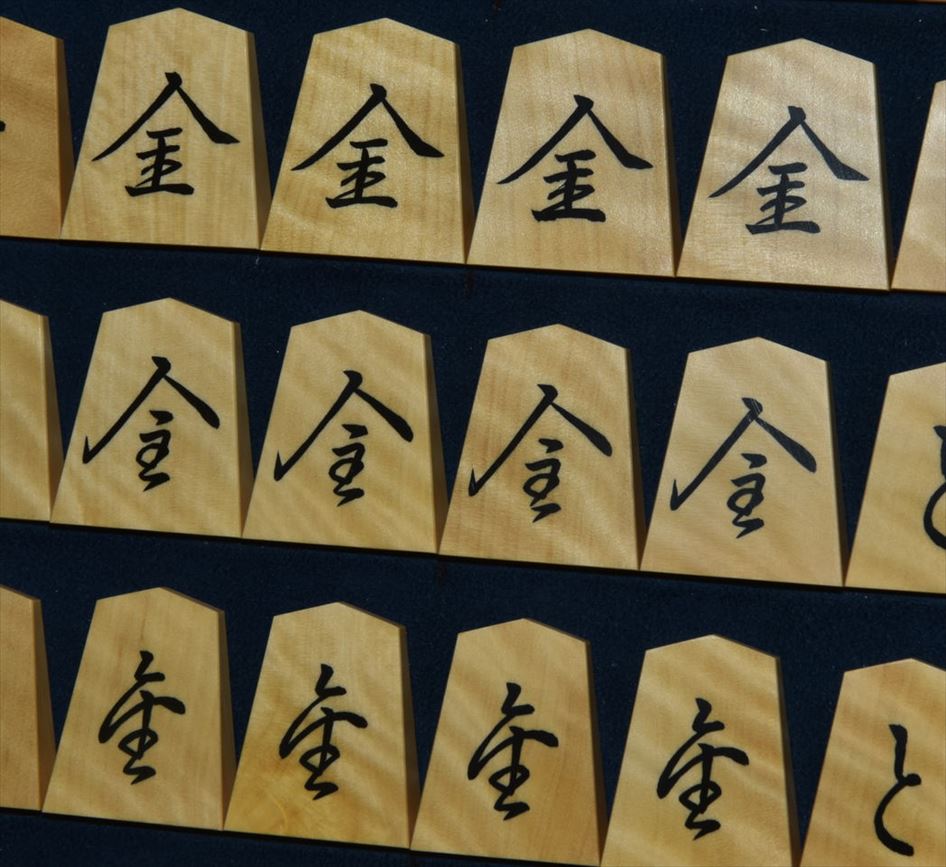 金 金 金 金
金 金 金 金 と
金 金 金 金 と